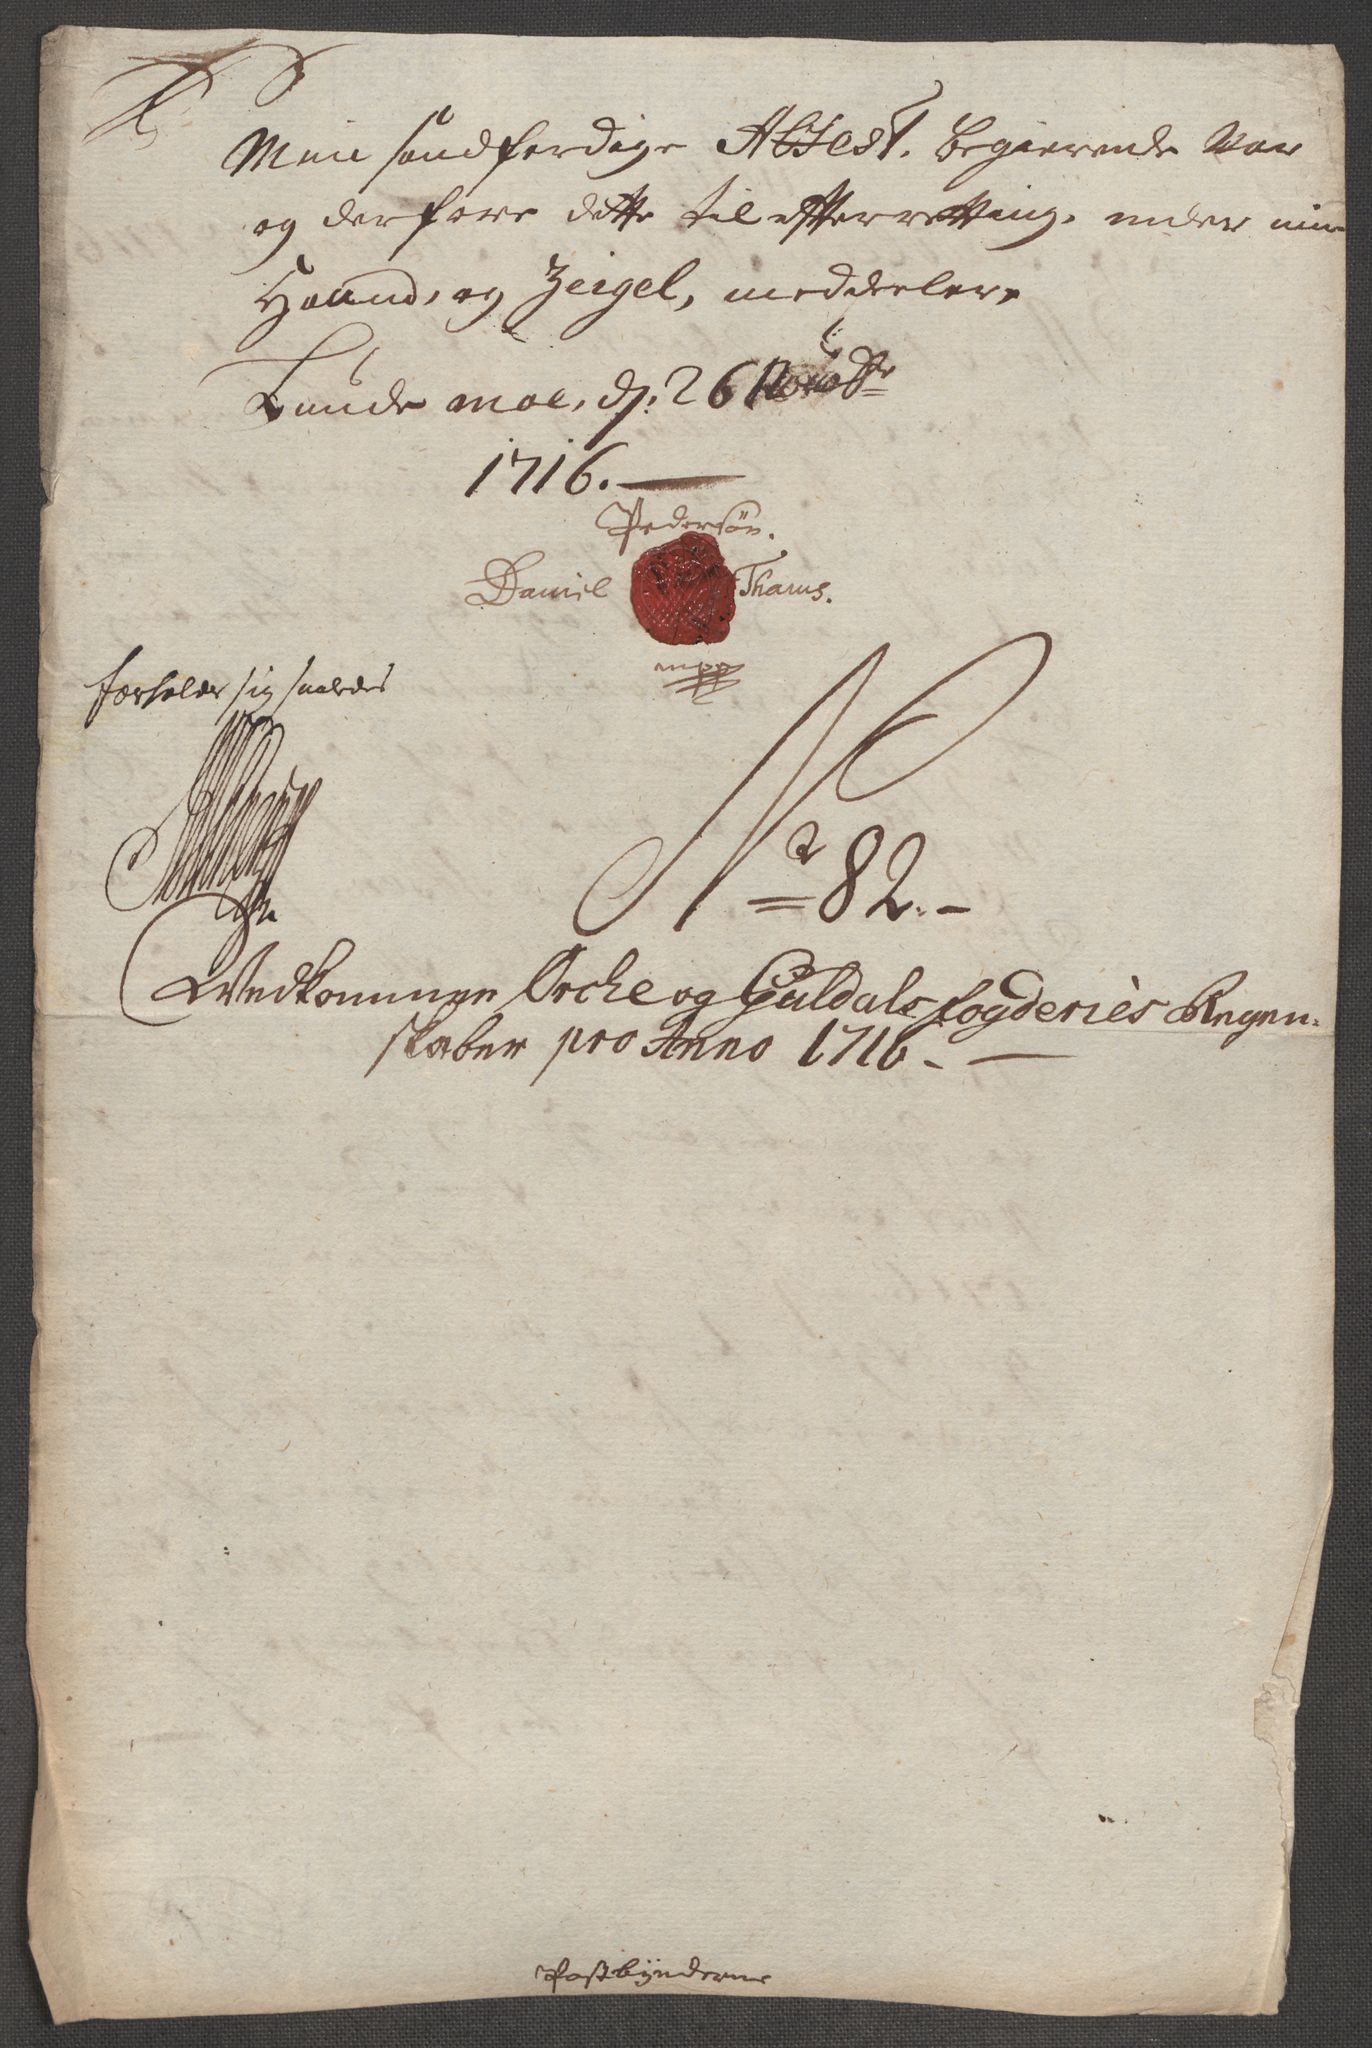 Min sandferdige Attest. begierende Var
og derfore dette til efterretting, under min
Haand, og Zeigel, meddeeler,
Lunde moe, d: 26 Novbr
1716.
Pedersøn.
Daniel Thams.
mpp
forholder sig saaledes
No 82.-
Wedkommen Orche og Guldals fogderies Regen-
skaber pro Anno 1716.-
Postbønderne